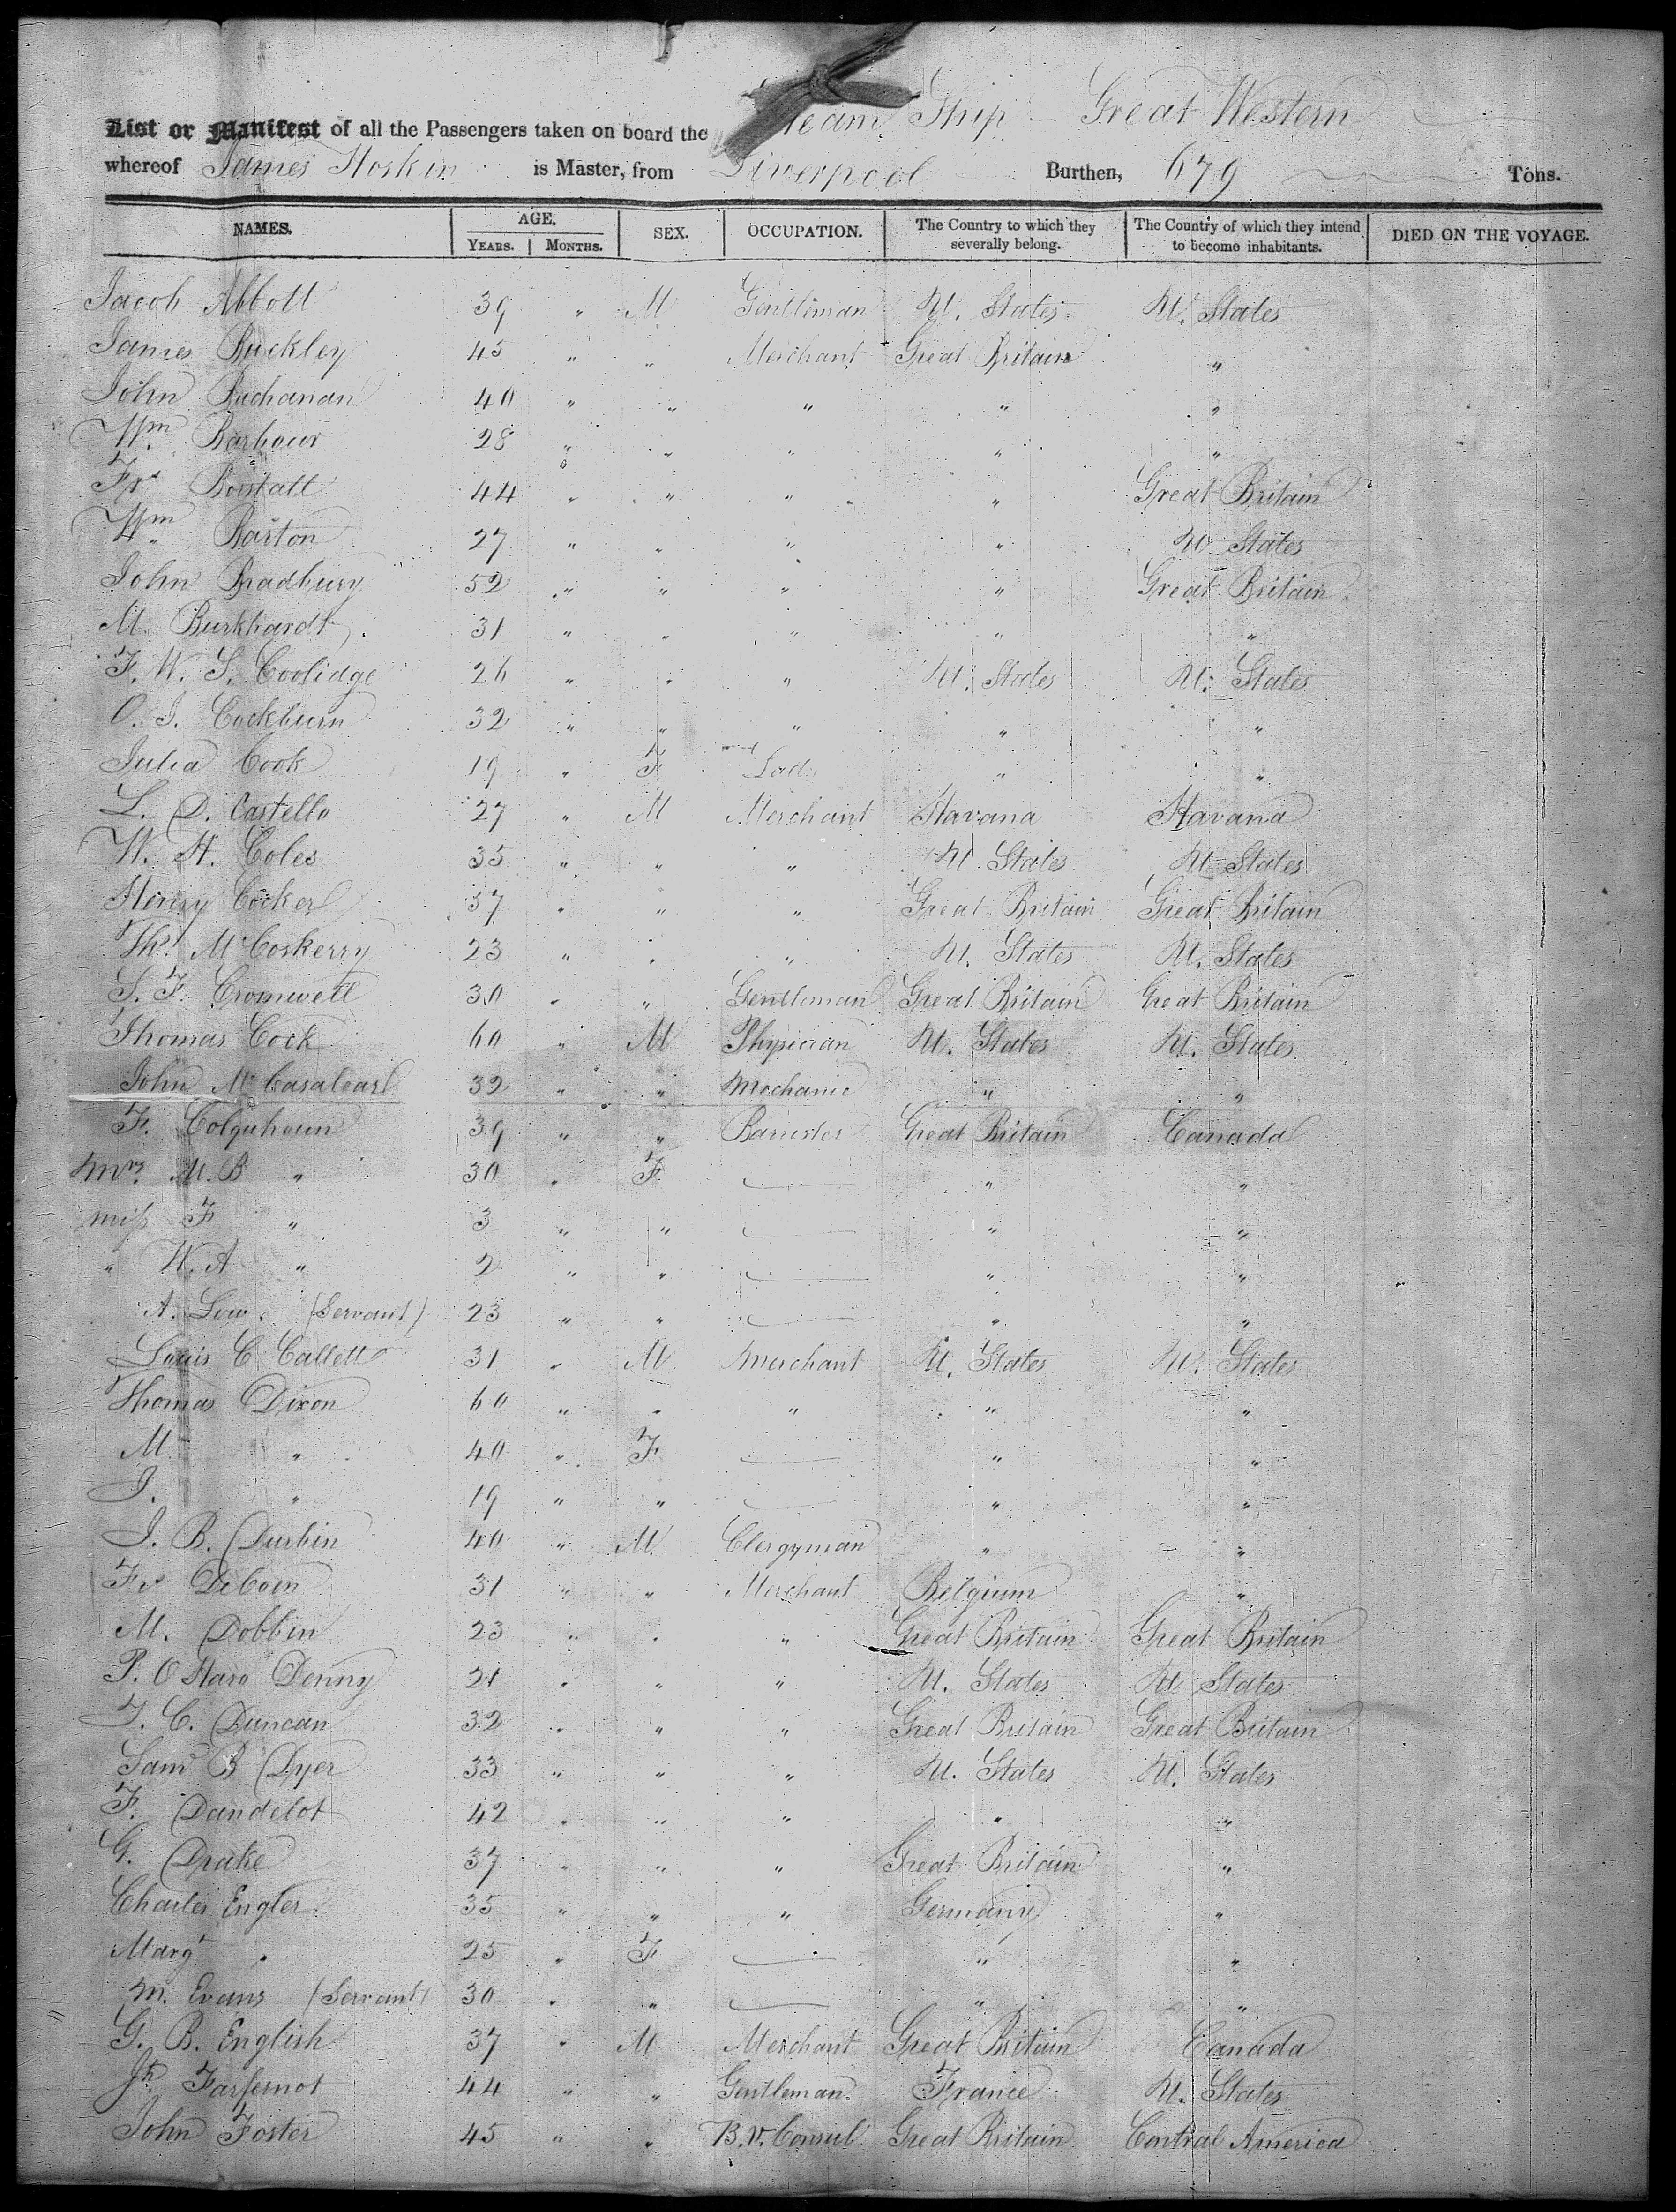 List or Manifest of all the Passengers taken on board the Steam Ship — Great Western
whereof James Hosken is Master, from Liverpool Burthen, 679 Tons.
NAMES. AGE. SEX. OCCUPATION. The Country to which they severally belong. The Country of which they intend to become inhabitants. DIED ON THE VOYAGE.
YEARS. MONTHS.
Jacob Abbott 39 " M Gentleman U. States U. States
James Buckley 45 " " Merchant Great Britain "
John Buchanan 40 " " " " "
Wm Barbour 28 " " " " "
Fr 44 " " " " Great Britain
Wm Barton 27 " " " " U States
John Bradbury 52 " " " " Great Britain
M. Burkhardt 31 " " " " "
F. W. S. Coolidge 26 " " " U. States U. States
O. J. Cockburn 32 " " " " "
Julia Cook 19 " F Lady " "
L. D. Castello 27 " M Merchant Havana Havana
W. H. Coles 35 " " " U. States U. States
Henry Cocker 37 " " " Great Britain Great Britain
Ths. McCoskerry 23 " " " U. States U. States
S. F. Cromwell 30 " " Gentleman Great Britain Great Britain
Thomas Cock 60 " M Physician U. States U. States
John 32 " " Mechanic " "
F. Colquhoun 39 " " Barrister Great Britain Canada
Mrs. M. B " 30 " F — " "
Miss F " 3 " " — " "
" W. A " 2 " " — " "
A. Low (Servant) 23 " " — " "
Louis C Catlett 31 " M Merchant U. States U. States
Thomas Dixon 60 " " " " "
M. " 40 " F — " "
J. " 19 " " — " "
J. B. Durbin 40 " M Clergyman " "
Fr DeCoen 31 " " Merchant Belgium "
M. Dobbin 23 " " " Great Britain Great Britain
P. O Hara Denny 21 " " " U. States U States
T. C. Duncan 32 " " " Great Britain Great Britain
Saml B Dyer 33 " " " U. States U. States
F. Dandelot 42 " " " " "
G. Drake 37 " " " Great Britain "
Charles Engler 35 " " " Germany "
Margt " 25 " F — " "
M. Evans (Servant) 30 " " — " "
G. B. English 37 " M Merchant Great Britain Canada
44 " " Gentleman France U. States
John Foster 45 " " B. V. Consul Great Britain Central America